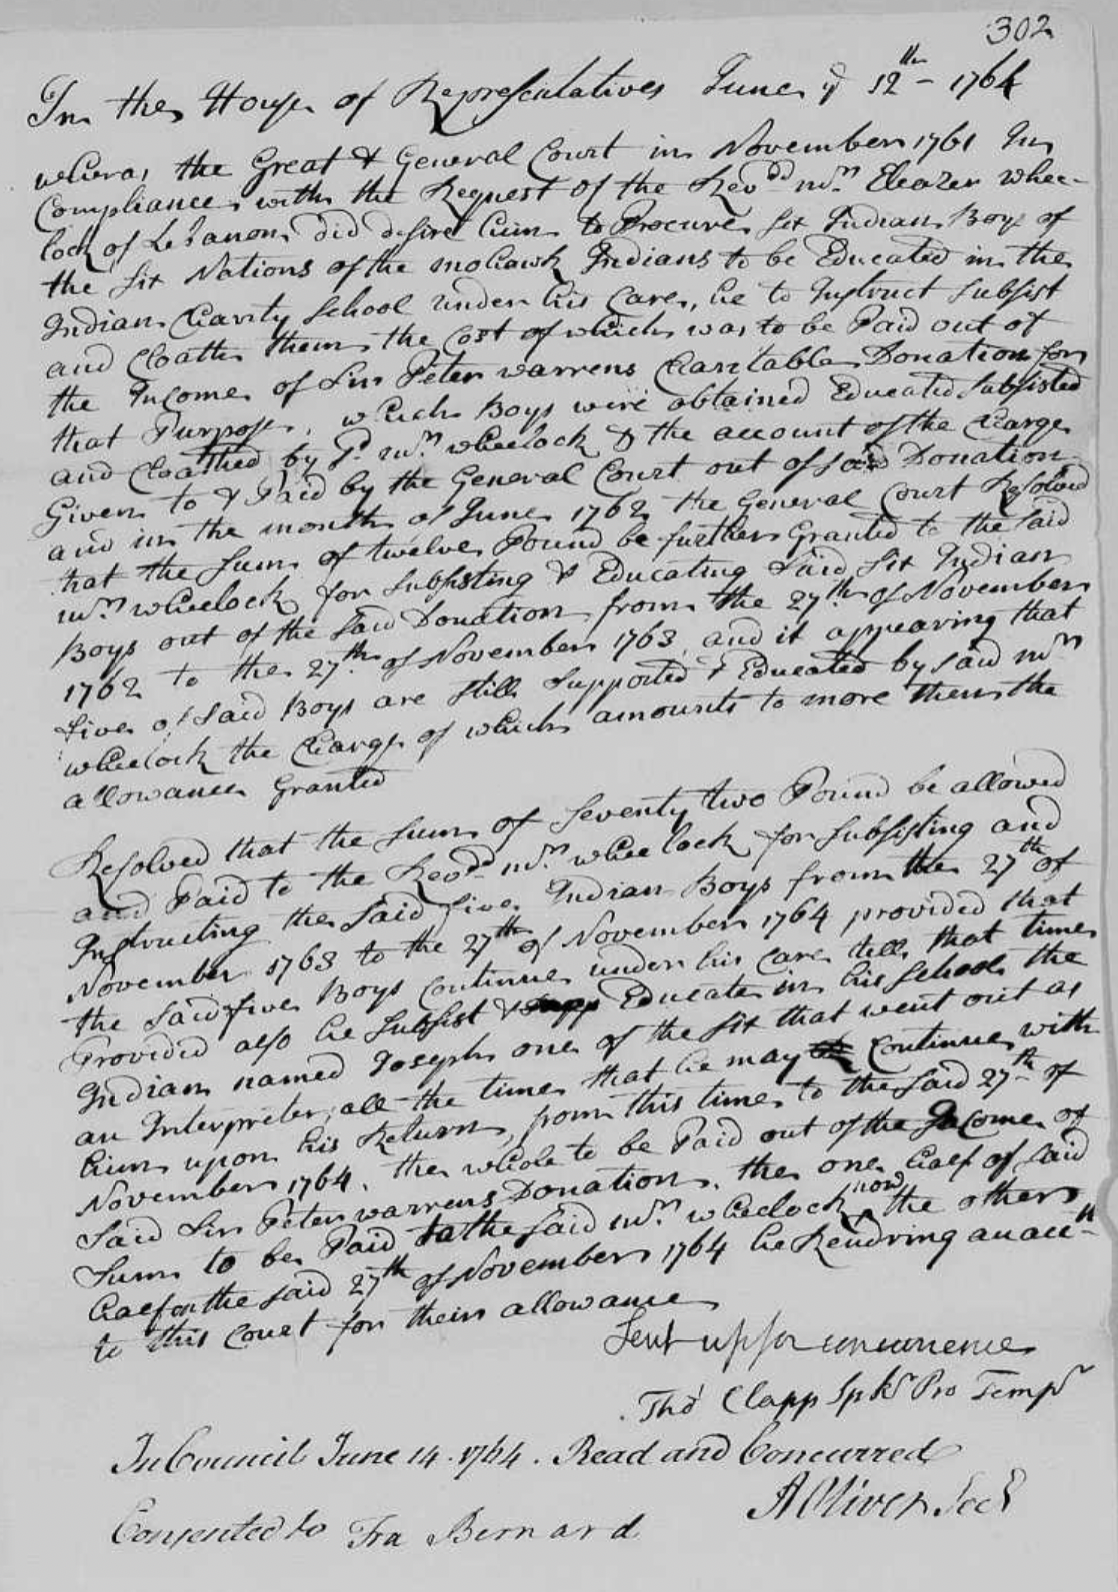 302
In the House of Representatives June ye 12th - 1764
whereas the Great & General Court in November 1761 In
Compliance with the Request of the Revdd mr. Eleazer Whee-
lock of Lebanon did desire him to Procure six Indian Boys of
the six Nations of the mohawk Indians to be Educated in the
Indian Charity School under his Care, he to Instruct subsist
and Cloath them the Cost of which was to be Paid out of
the Income of Sir Peter warrens Charitable Donation for
that Purpose, which Boys were obtained Educated subsisted
and Cloathed by sd. mr. wheelock & the account of the Charge
Given to & Paid by the General Court out of said Donation
and in the month of June 1762 the General Court Resolved
that the sum of twelve Pound be further Granted to the said
mr. wheelock for subsisting & Educating said six Indian
Boys out of the said Donation from the 27th. of November
1762 to the 27th. of November 1763, and it appearing that
five of said Boys are still supported & Educated by said mr.
wheelock the Charge of which amounts to more then the
allowance Granted
Resolved that the sum of seventy two Pound be allowed
and Paid to the Revd. mr. wheelock for subsisting and
Instructing the said five Indian Boys from the 27th of
November 1763 to the 27th of November 1764 provided that
the said five Boys Continue under his care tell that time
Provided also he subsist & Educate in his school the
Indian named Joseph one of the six that went out as
an Interpreter, all the time that he may Continue with
him upon his Return, from this time to the said 27th of
November 1764, the whole to be Paid out of the Income of
said Sir Peter warrens Donation, the one half of said
sum to be Paid to the said mr. wheelock now the other
half on the said 27th of November 1764 he Rendring an acct
to this Court for their allowance
Sent up for concurrence
Tho Clapp Spkr Pro Tempr
In Council June 14. 1764. Read and Concurred
A Oliver Secr
Consented to Fra Bernard